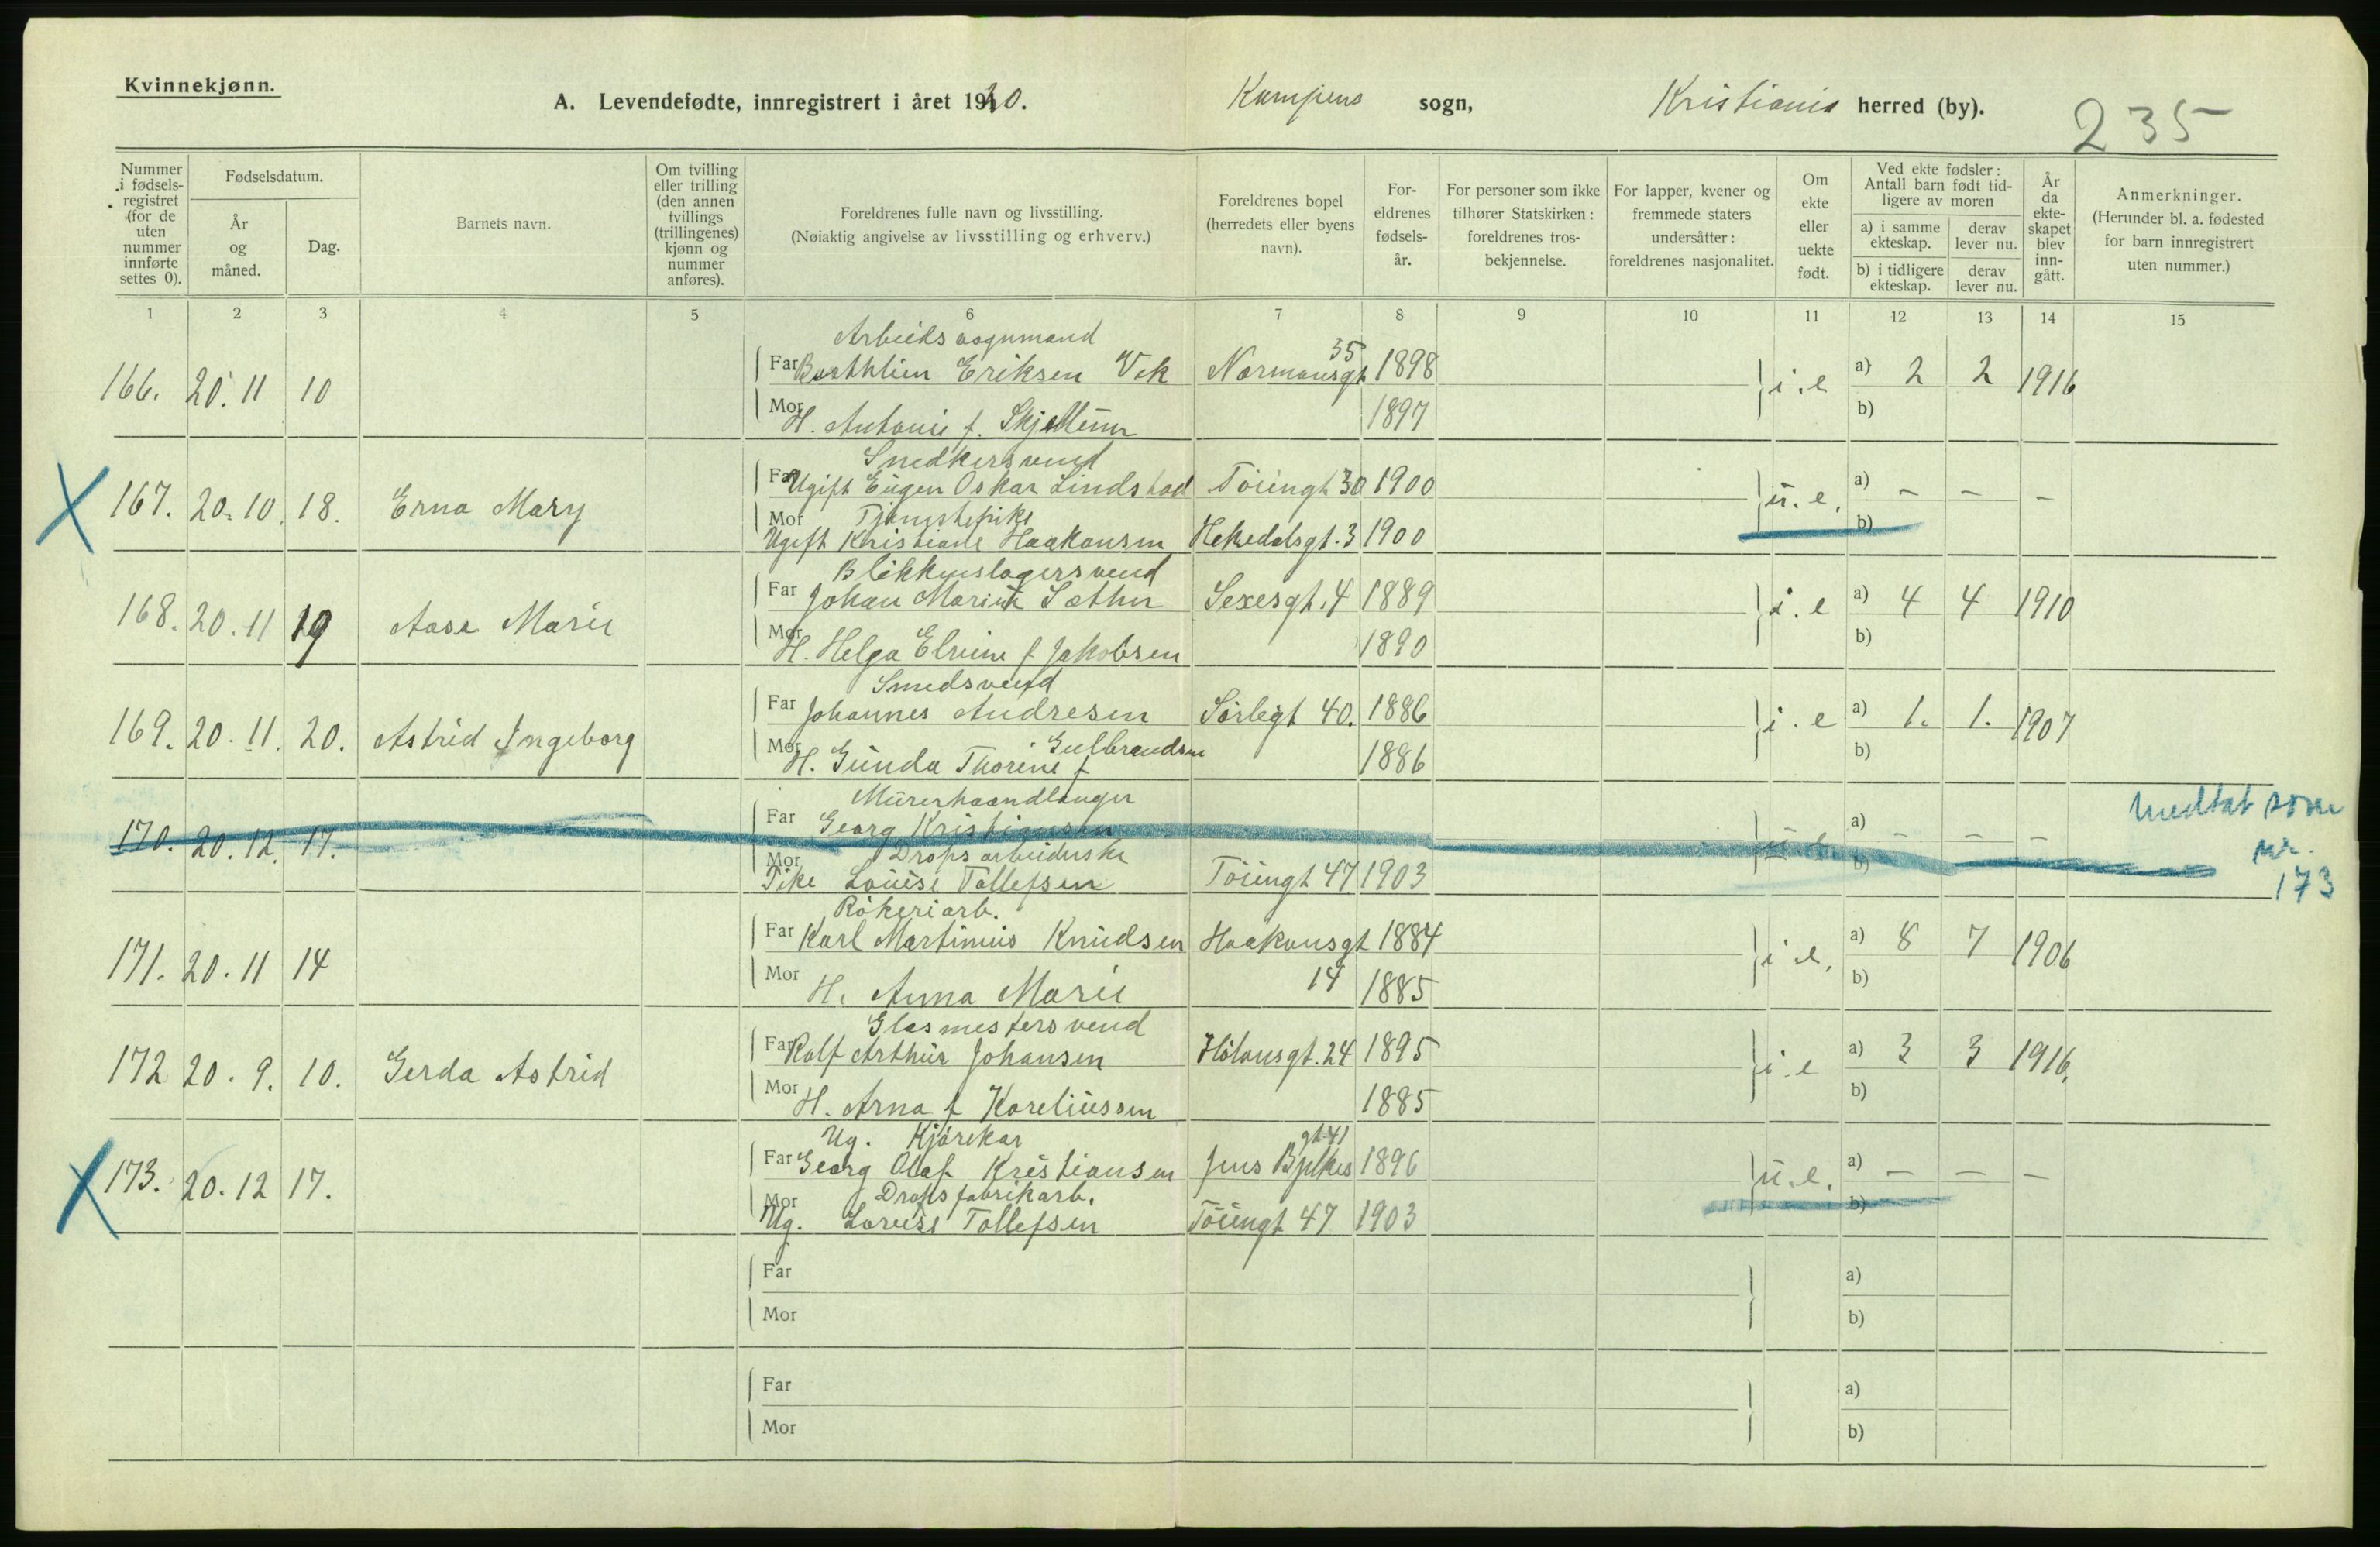 Kvinnekjønn.
A. Levendefødte, innregistrert i året 1920. Kampens sogn, Kristiania herred (by). 235
Nummer i fødselsregistret (for de uten nummer innførte settes 0).
Fødselsdatum.
År og måned.
Dag.
Barnets navn.
Om tvilling eller trilling (den annen tvillings (trillingenes) kjønn og nummer anføres).
Foreldrenes fulle navn og livsstilling.
(Nøiaktig angivelse av livsstilling og erhverv.)
Foreldrenes bopel (herredets eller byens navn).
Foreldrenes fødselsår.
For personer som ikke tilhører Statskirken: foreldrenes trosbekjennelse.
For lapper, kvener og fremmede staters undersåtter: foreldrenes nasjonalitet.
Om ekte eller uekte født.
Ved ekte fødsler: Antall barn født tidligere av moren
a) i samme ekteskap.
derav lever nu.
b) i tidligere ekteskap.
derav lever nu.
År da ekteskapet blev inngått.
Anmerkninger.
(Herunder bl. a. fødested for barn innregistrert uten nummer.)
1 2 3 4 5 6 7 8 9 10 11 12 13 14 15
Arbeidsvognmand
166. 20. 11 10 Far Eriksen Vik Normansgt 35 1898 i. e a) 2 2 1916
Mor H. Antonie f. 1897 b)
Snedkersvend
167. 20. 10. 18. Erna Mary Far Ugift Eugen Oskar Lindstad Töiengt 30 1900 u. e. a) – – –
Tjenestepike
Mor Ugift Kristiane Haakonsen Hekedalsgt. 3 1900 b)
Blikkenslagersvend
168. 20. 11 19 Aase Marie Far Johan Sæther Sexesgt. 4 1889 i. e a) 4 4 1910
Mor H. Helga Elvine f Jakobsen 1890 b)
Smedsvend
169. 20. 11. 20. Astrid Ingeborg Far Johannes Andresen Sörligt 40. 1886 i. e a) 1. 1. 1907
Mor H. Gunda Thorine f Gulbrandsen 1886 b)
Murerhaandlanger
170. 20. 12. 17. Far Georg Kristiansen u. e. a) – – – medtat som nr. 173
Drops arbeiderske
Mor Pike Louise Tollefsen Töiengt 47 1903 b)
Rökeriarb.
171. 20. 11 14 Far Karl Martinius Knudsen Haakonsgt 1884 i e. a) 8 7 1906
Mor H. Anna Marie 14 1885 b)
Glasmestersvend
172 20. 9. 10. Gerda Astrid Far Rolf Arthur Johansen Hölandsgt. 24 1895 i. e a) 3 3 1916.
Mor H. Arna f Koreliussen 1885 b)
Ug. Kjörekar
173. 20. 12 17. Far Georg Olaf Kristiansen Jens Bjelkes gt. 41 1896 u. e. a) – – –
Drops fabrikarb.
Mor Ug. Lovise Tollefsen Töiengt 47 1903 b)
Far a)
Mor b)
Far a)
Mor b)